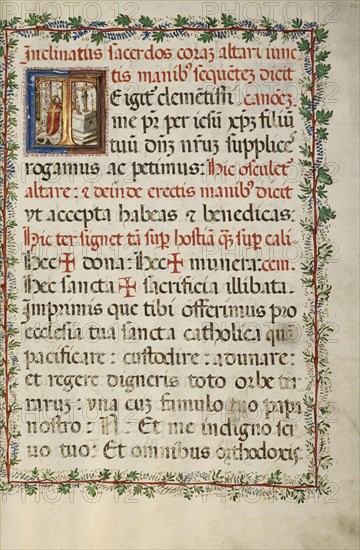 Inclinatus sacerdos coraz altari iunc
tis manib₉ sequētez dicit
TE igit᷑ clemētissi canōez.
me pr̄ per iesū xp̄z filiū
tuū dn̄z nr̄uz supplice
rogamus ac petimus: Hic osculet᷑
altare: & deinde erectis manib₉ dicit
vt accepta habeas & benedicas:
Hic ter signet tā sup̄ hostiā q̄z sup̄ cali
Hec ✠ dona: Hec ✠ munera: cem.
Hec sancta ✠ sacrificia illibata.
Imprimis que tibi offerimus pro
ecclesia tua sancta catholica quā
pacificare: custodire: adunare:
et regere digneris toto orbe ter
raruz: vna cuz famulo tuo papa
nostro: N. Et me indigno ser
uo tuo: Et omnibus orthodoxis